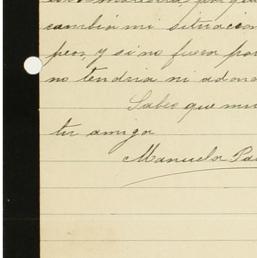 cambia mi situacion
peor, y si no fuera por
no tendria ni adond
Sabes que mu
tu amiga
Manuela